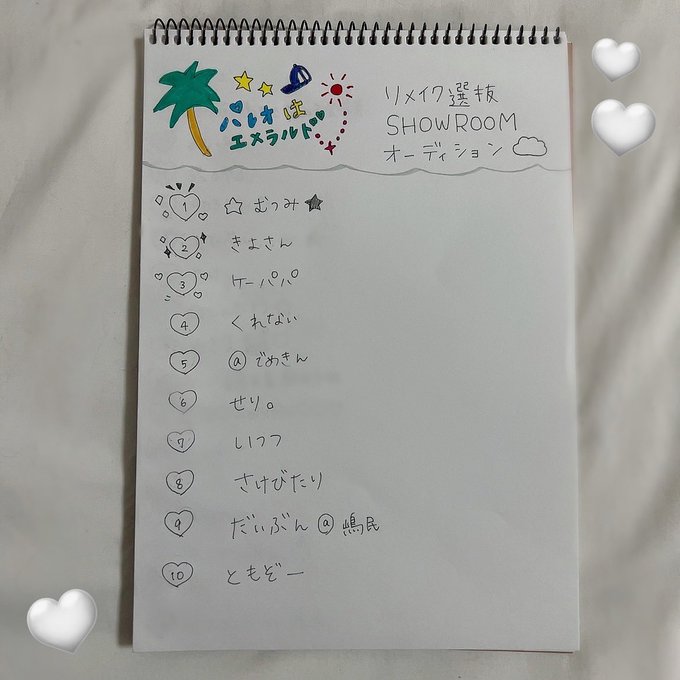 パレオは
エメラルド
リメイク選抜
SHOWROOM
オーディション
1 ☆むつみ★
2 きよさん
3 ケーパパ
4 くれない
5 @でめきん
6 せり。
7 しいつつ
8 さけびたり
9 だいぶん@嶋民
10 ともぞー